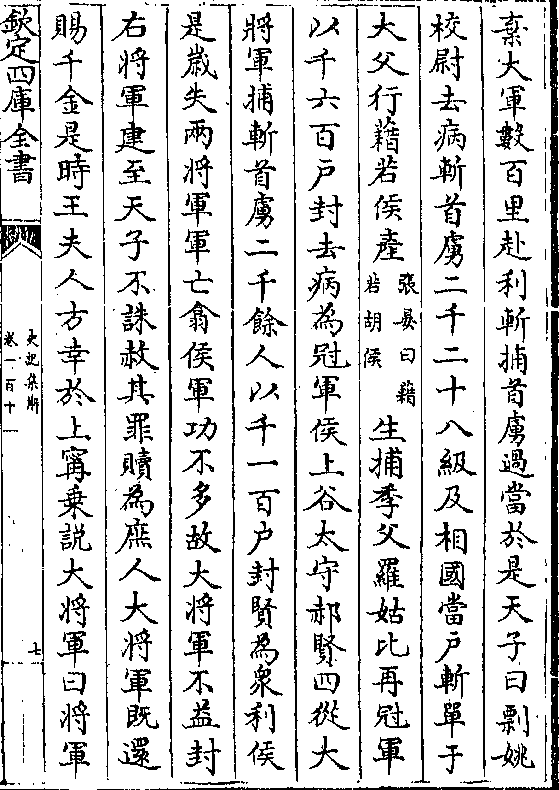 棄大軍數百里赴利斬捕首虜過當於是天子曰剽姚
校尉去病斬首虜二千二十八級及相國當户斬單于
大父行藉若侯産張晏曰藉若胡侯生捕季父羅姑比再冠軍
以千六百户封去病為冠軍侯上谷太守郝賢四從大
將軍捕斬首虜二千餘人以千一百户封賢為衆利侯
是嵗失兩将軍軍亡翕侯軍功不多故大将軍不益封
右將軍建至天子不誅赦其罪贖為庶人大將軍既還
賜千金是時王夫人方幸於上甯乗説大將軍曰將軍
欽定四庫全書
史記集解
卷一百十一
七